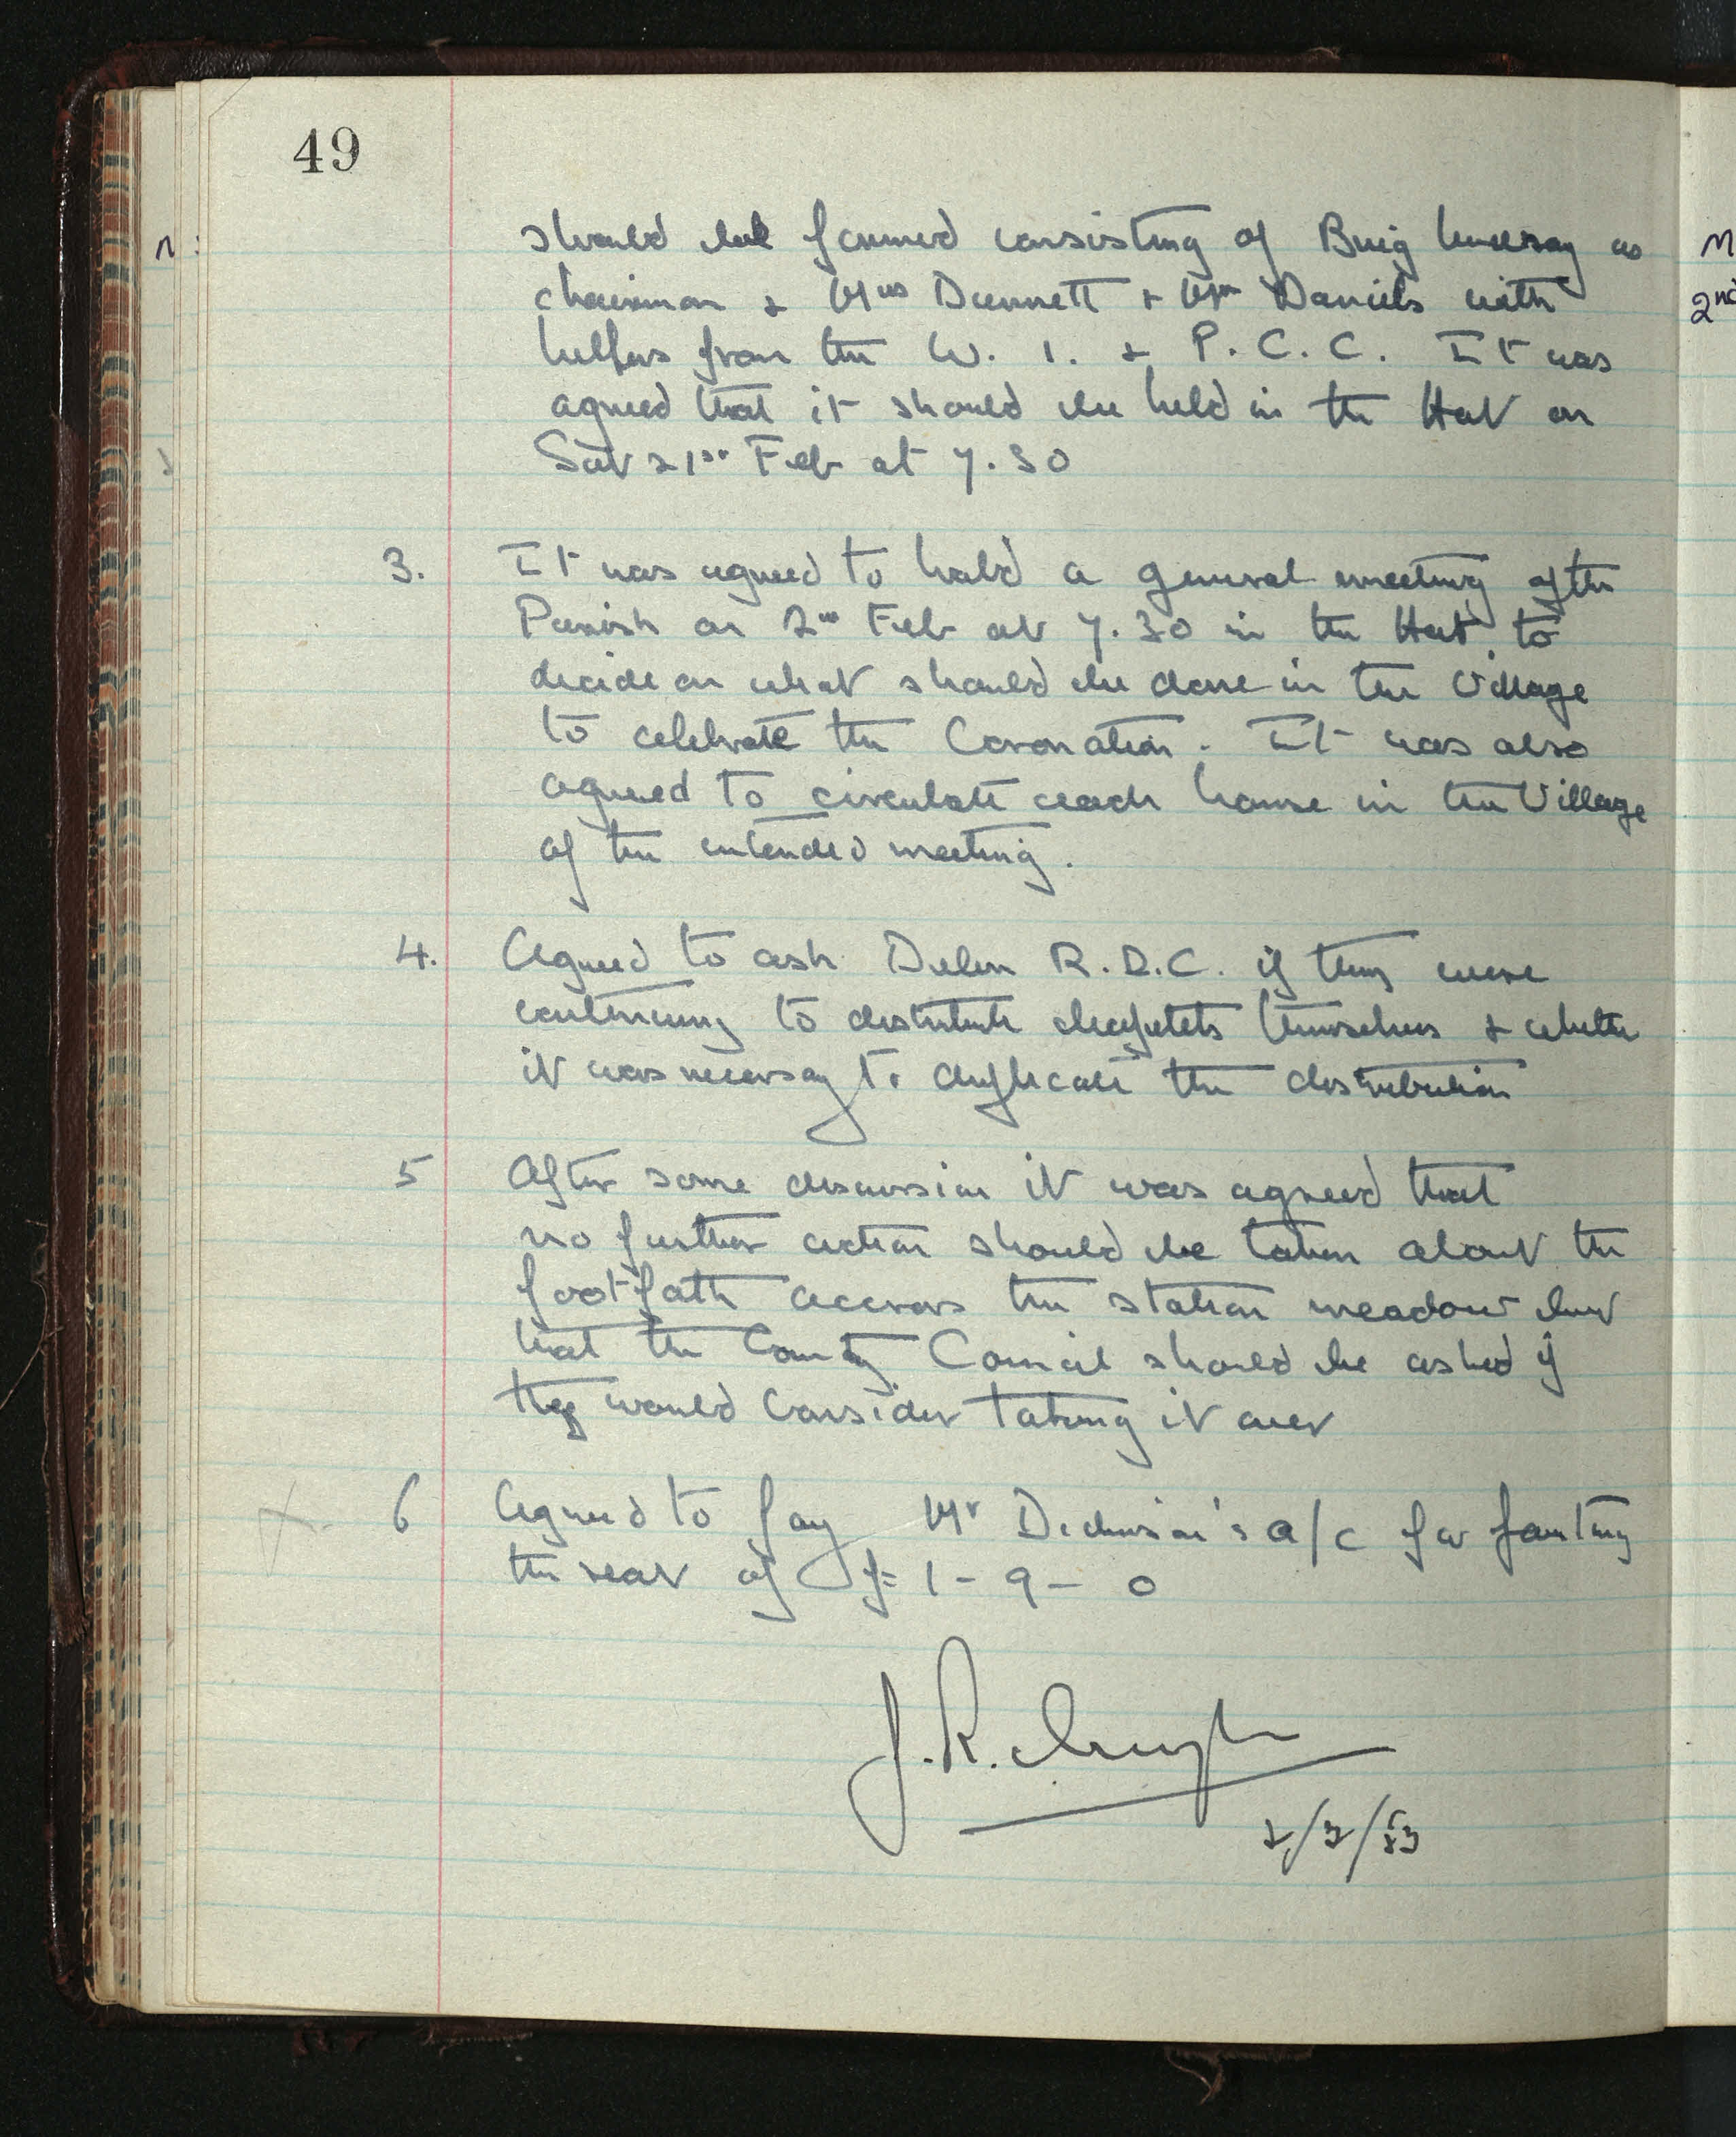 49
should be formed consisting of Brig as
chairman & Mrs Dunnett & Mrs Daniels with
helpers from the W. I. & P. C. C. It was
agreed that it should be held in the Hut on
Sat 21st Feb at 7.30
3. It was agreed to hold a general meeting of the
Parish on 2nd Feb at 7.30 in the Hut to
decide on what should be done in the Village
to celebrate the Coronation. It was also
agreed to circulate each house in the Village
of the intended meeting.
4. Agreed to ask R.D.C. if they were
continuing to distribute themselves & whether
it was necessary to duplicate the distribution
5 After some discussion it was agreed that
no further action should be taken about the
footpath accross the station meadow but
that the County Council should be asked if
they would consider taking it over
6 Agreed to pay Mr Dickinson's a/c for painting
the seat of £ 1 - 9 - 0
J.R.
2/2/53
M
2nd